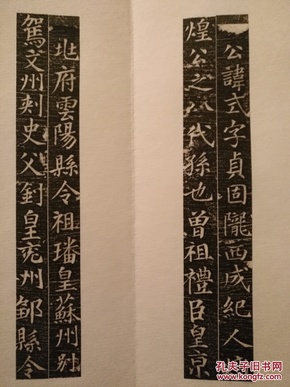 公諱式字貞固隴西成紀人
煌公之八代孫也曾祖禮臣皇京
兆府雲陽縣令祖璠皇蘇州別
駕文州刺史父釗皇雍州鄠縣令
孔夫子旧书网